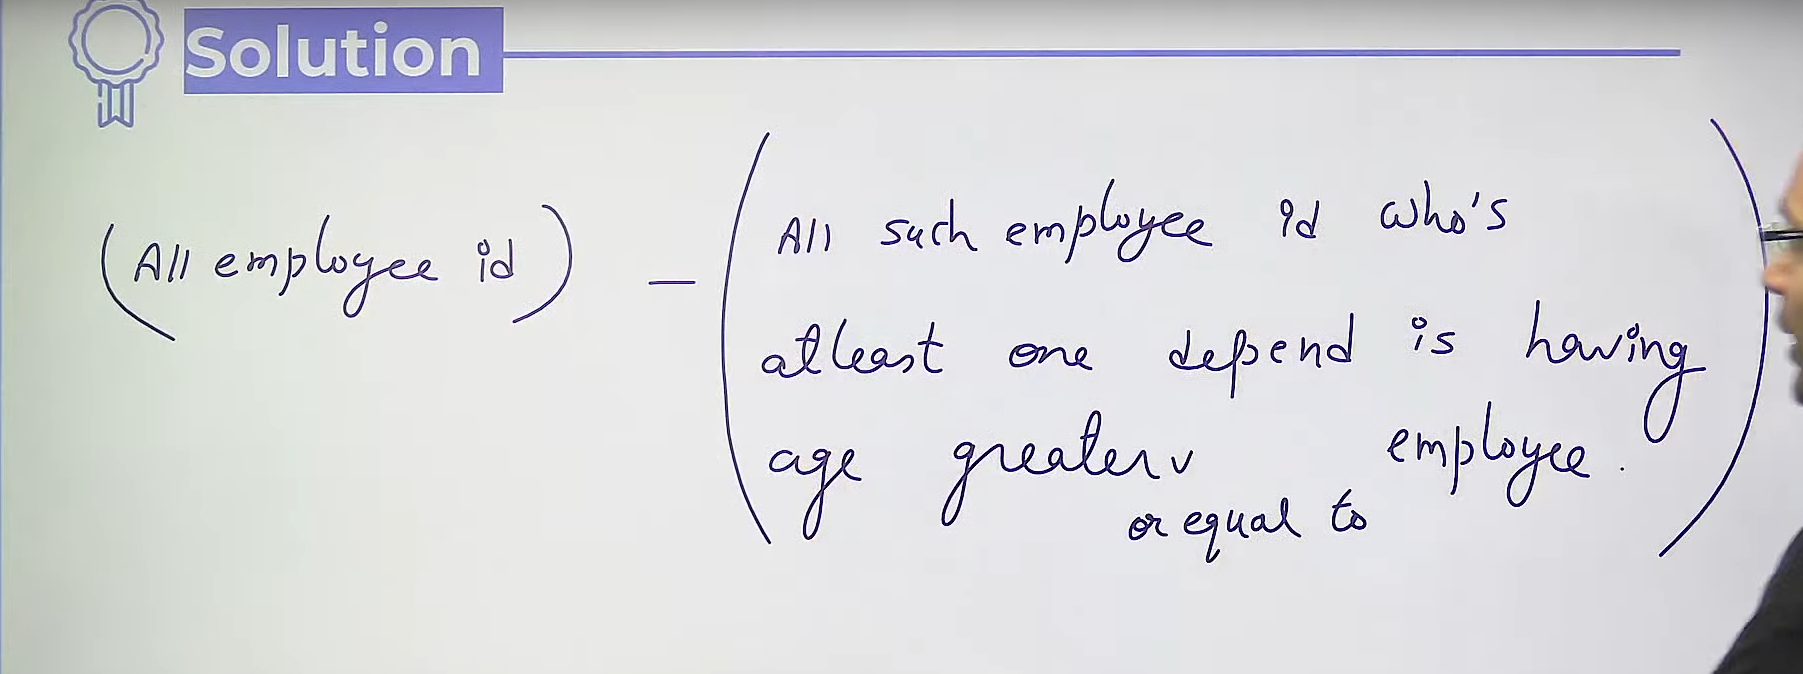 Solution
(All employee id) - (All such employee id who's
atleast one depend is having
age greater v employee.
or equal to)